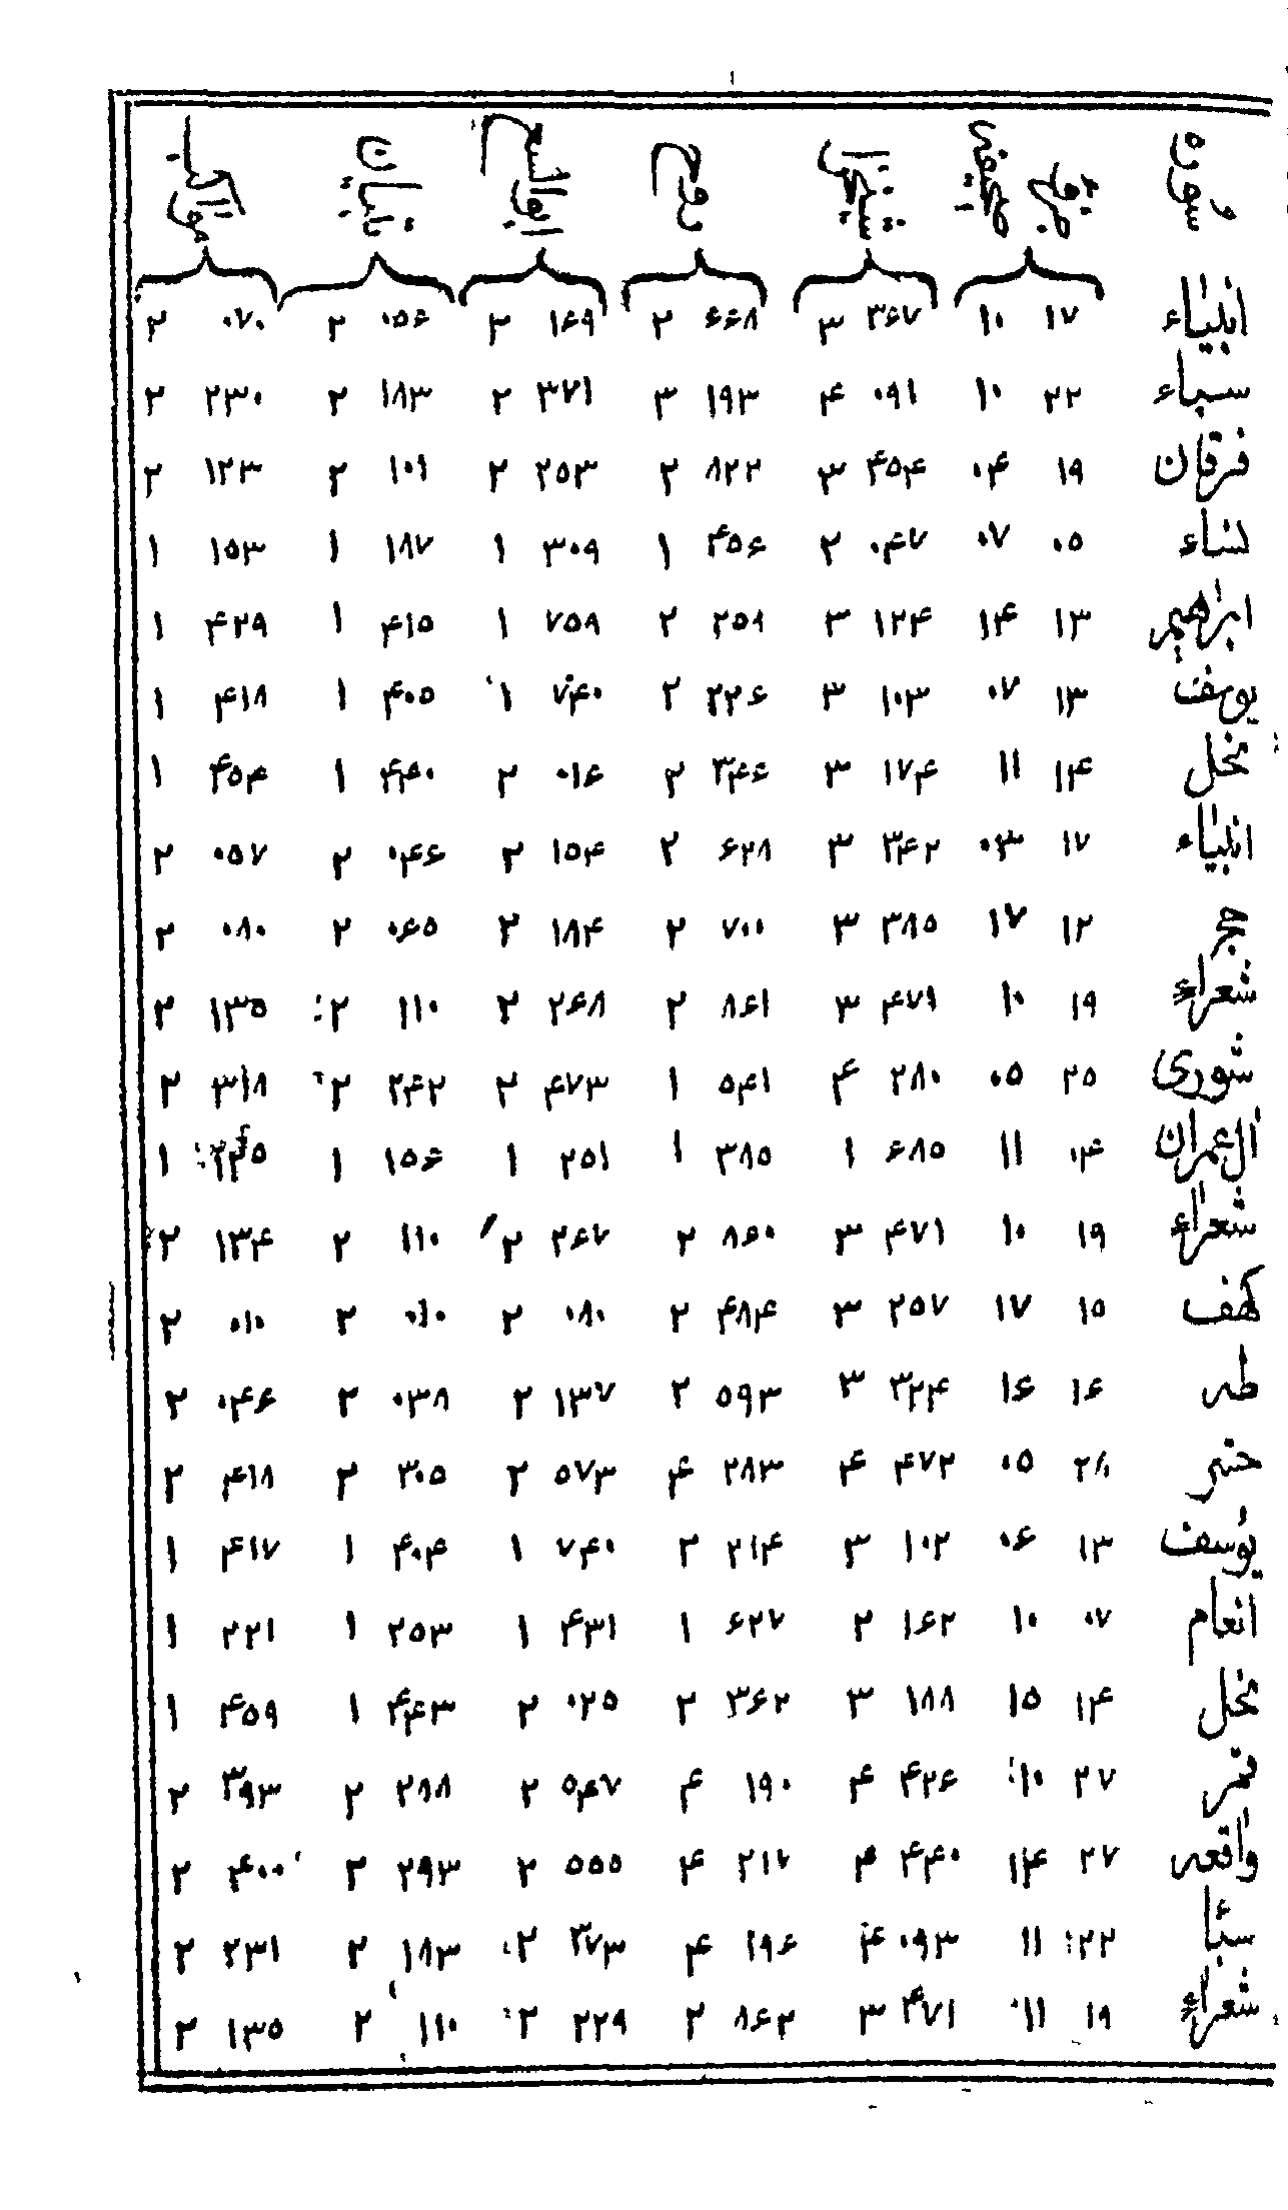 سوره جزو صحیفه منهج روح ابوالفتوح تبیان مواکب
انبیاء ۱۷ ۱۰ ۳۶۷ ۳ ۶۶۸ ۲ ۱۶۹ ۲ ۰۵۶ ۲ ۰۷۰ ۲
سباء ۲۲ ۱۰ ۰۹۱ ۴ ۱۹۳ ۳ ۳۷۱ ۲ ۱۸۳ ۲ ۲۳۰ ۲
فرقان ۱۹ ۰۴ ۴۵۴ ۳ ۸۲۲ ۲ ۲۵۳ ۲ ۱۰۱ ۲ ۱۲۳ ۲
نساء ۰۵ ۰۷ ۰۴۷ ۲ ۴۵۶ ۱ ۳۰۹ ۱ ۱۸۷ ۱ ۱۵۳ ۱
ابراهیم ۱۳ ۱۴ ۱۲۴ ۳ ۲۵۱ ۲ ۷۵۹ ۱ ۴۱۵ ۱ ۴۲۹ ۱
یوسف ۱۳ ۰۷ ۱۰۳ ۳ ۲۲۶ ۲ ۷۴۰ ۱ ۴۰۵ ۱ ۴۱۸ ۱
نحل ۱۴ ۱۱ ۱۷۴ ۳ ۳۴۶ ۲ ۰۱۶ ۲ ۴۴۰ ۱ ۴۵۴ ۱
انبیاء ۱۷ ۰۳ ۳۴۲ ۳ ۶۲۸ ۲ ۱۵۴ ۲ ۰۴۶ ۲ ۰۵۷ ۲
حج ۱۲ ۱۷ ۳۸۵ ۳ ۷۰۰ ۲ ۱۸۴ ۲ ۰۶۵ ۲ ۰۸۰ ۲
شعراء ۱۹ ۱۰ ۴۷۱ ۳ ۸۶۱ ۲ ۲۶۸ ۲ ۱۱۰ ۲ ۱۳۵ ۲
شوری ۲۵ ۰۵ ۲۸۰ ۴ ۵۴۱ ۱ ۴۷۳ ۲ ۲۴۲ ۲ ۳۱۸ ۲
آل عمران ۰۴ ۱۱ ۶۸۵ ۱ ۳۸۵ ۱ ۲۵۱ ۱ ۱۵۶ ۱ ۱
شعراء ۱۹ ۱۰ ۴۷۱ ۳ ۸۶۰ ۲ ۲۶۷ ۲ ۱۱۰ ۲ ۱۳۴ ۲
کهف ۱۵ ۱۷ ۲۵۷ ۳ ۴۸۴ ۲ ۰۸۰ ۲ ۰۱۰ ۲ ۰۱۰ ۲
طه ۱۶ ۱۶ ۳۲۴ ۳ ۵۹۳ ۲ ۱۳۷ ۲ ۰۳۸ ۲ ۰۴۶ ۲
حشر ۲۸ ۰۵ ۴۷۲ ۴ ۲۸۳ ۴ ۵۷۳ ۲ ۳۰۵ ۲ ۴۱۸ ۲
یوسف ۱۳ ۰۶ ۱۰۲ ۳ ۲۱۴ ۲ ۷۴۰ ۱ ۴۰۴ ۱ ۴۱۷ ۱
انعام ۰۷ ۱۰ ۱۶۲ ۲ ۶۲۷ ۱ ۴۳۱ ۱ ۲۵۳ ۱ ۲۲۱ ۱
نحل ۱۴ ۱۵ ۱۸۸ ۳ ۳۶۲ ۲ ۰۲۵ ۲ ۴۴۳ ۱ ۴۵۹ ۱
قمر ۲۷ ۱۰ ۴۲۶ ۴ ۱۹۰ ۴ ۵۴۷ ۲ ۲۸۸ ۲ ۳۹۳ ۲
واقعه ۲۷ ۱۴ ۴۴۰ ۴ ۲۱۷ ۴ ۵۵۵ ۲ ۲۹۳ ۲ ۴۰۰ ۲
سبأ ۲۲ ۱۱ ۰۹۳ ۴ ۱۹۶ ۴ ۳۷۳ ۲ ۱۸۳ ۲ ۲۳۱ ۲
شعراء ۱۹ ۱۱ ۴۷۱ ۳ ۸۶۲ ۲ ۲۲۹ ۲ ۱۱۰ ۲ ۱۳۵ ۲